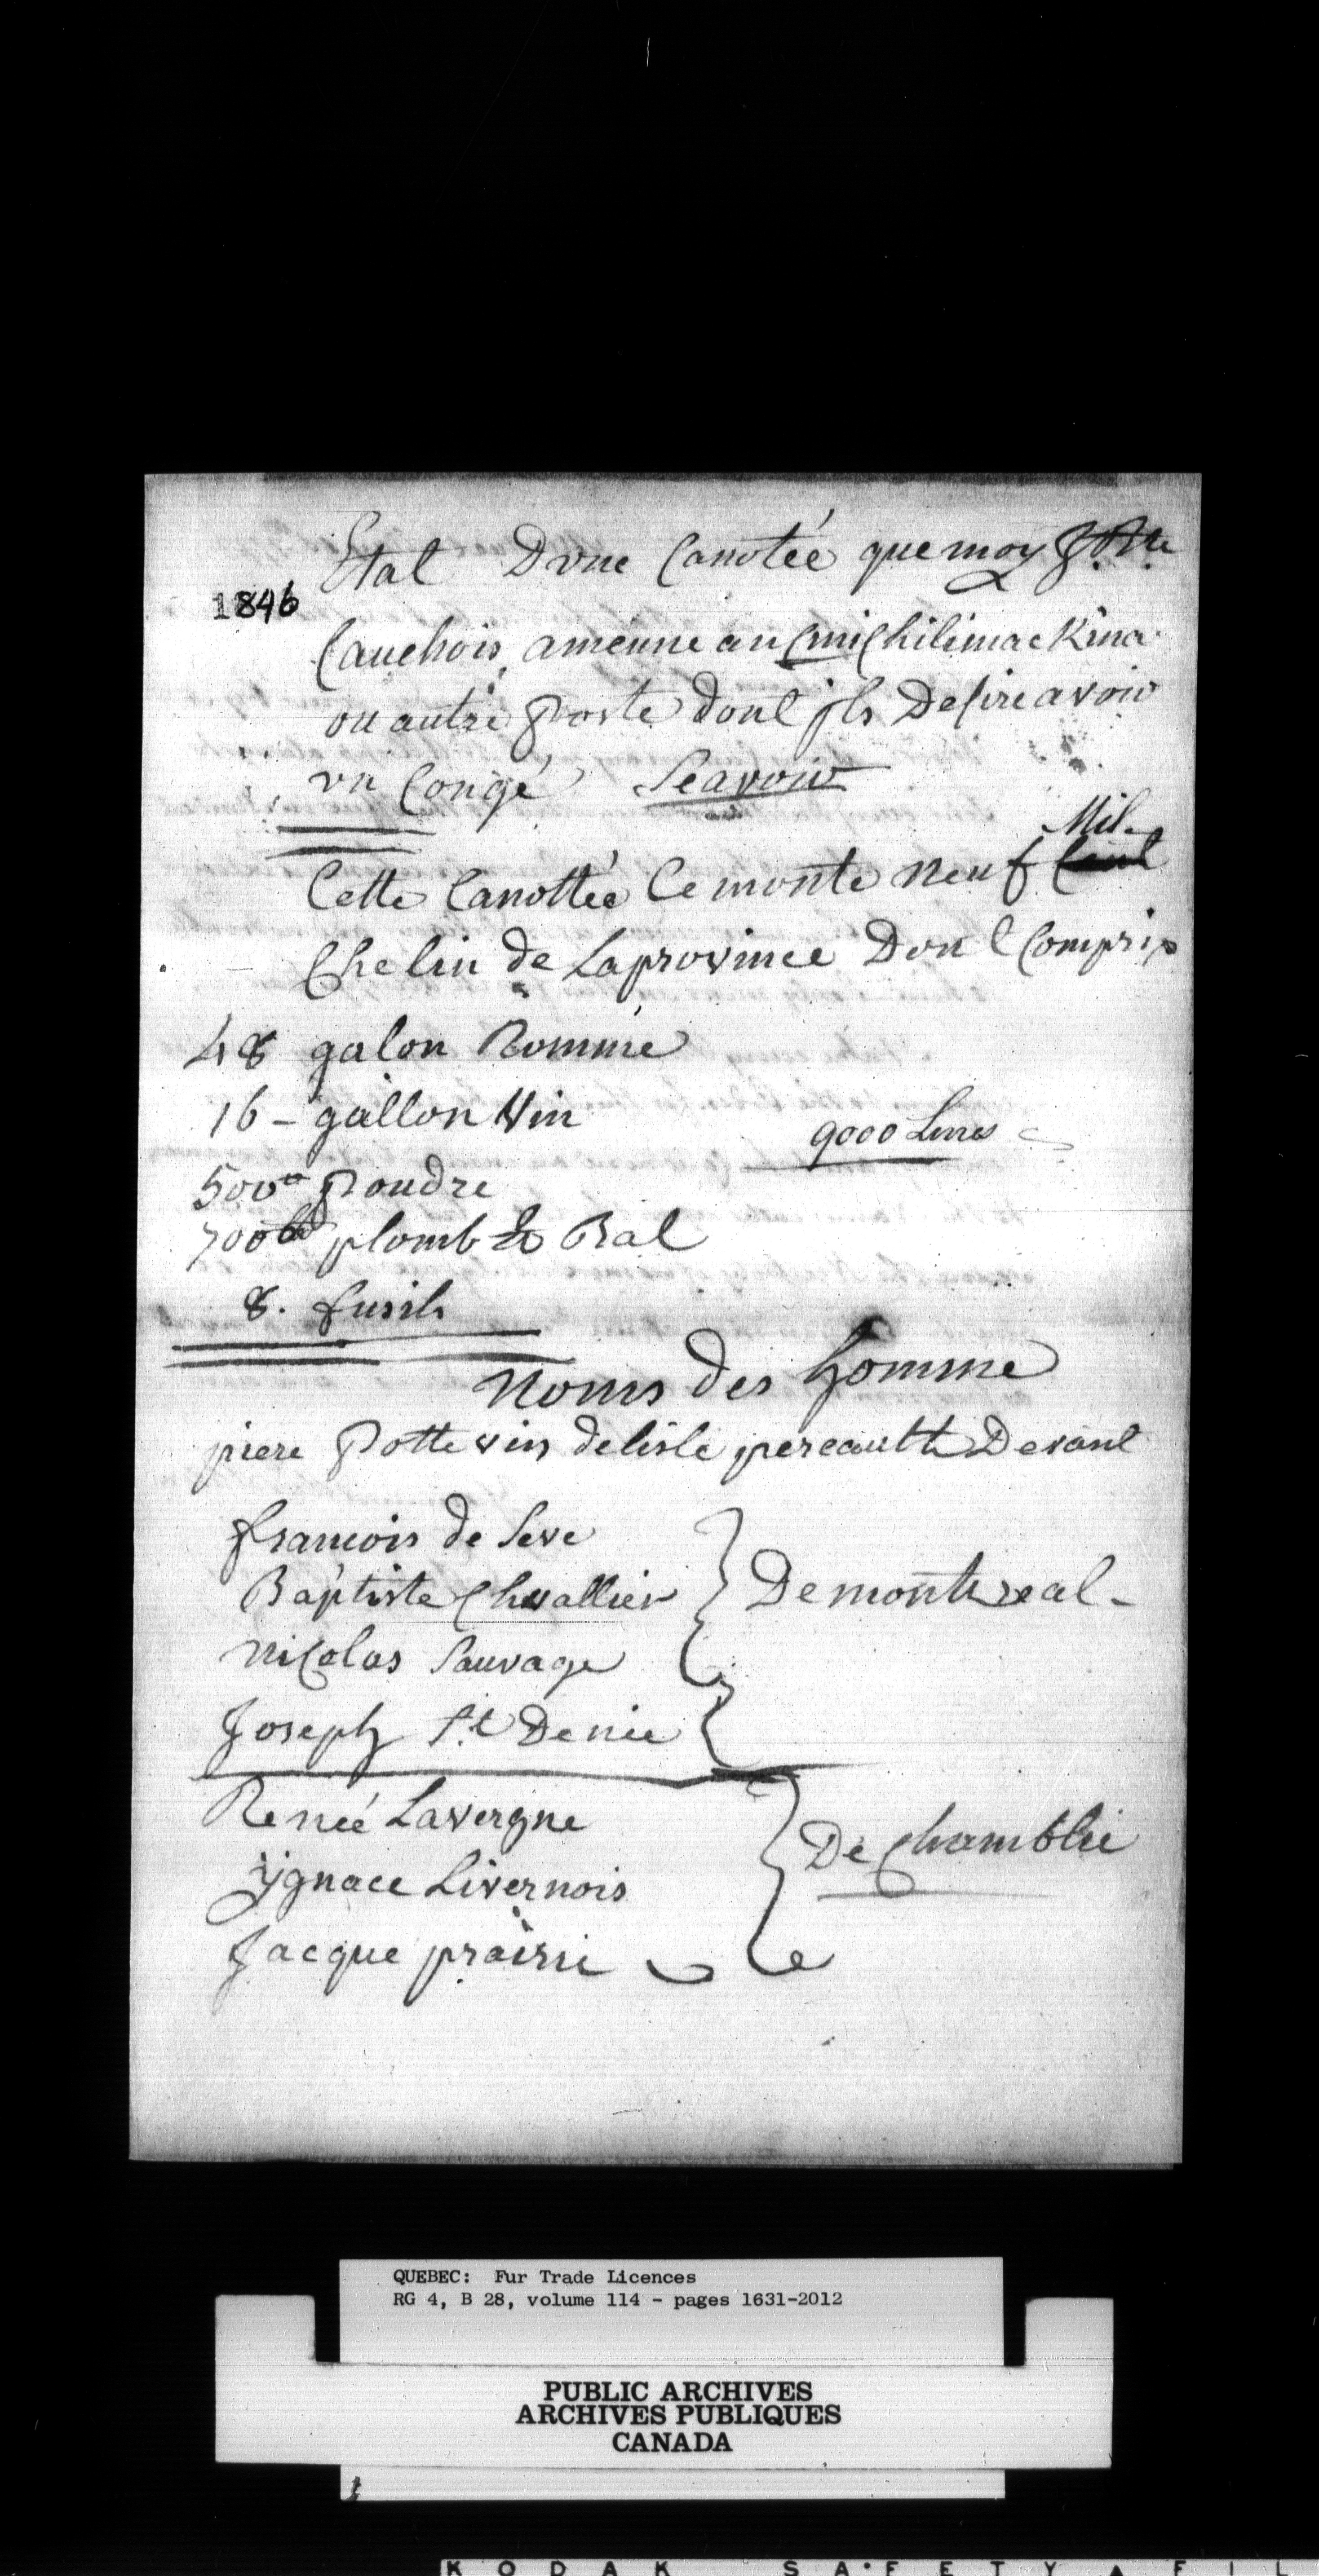 Etat Dvne Canotée que moy J. Bte
1846
Cauchois amenne au Michilimackina
ou autre poste dont jls Desire avoir
vn Congé Scavoir
Mil
Cette Canottée Ce monte neuf Cent
Chelin de Laprovince Dont Compris
48 galon Romme
16 - gallon Vin
9000 Livres
500 poudre
700 plomb & Bal
8. fusils
Noms des homme
piere Pottevin delisle pereault Devant
francois de Seve
Baptiste Chevallier
Demontreal -
Nicolas Sauvage
Joseph St Denie
Reneé Lavergne
De Chamblie
Ygnace Livernois
Jacque prairie
QUEBEC: Fur Trade Licences
RG 4, B 28, volume 114 - pages 1631-2012
PUBLIC ARCHIVES
ARCHIVES PUBLIQUES
CANADA
KODAK SAFETY FIL